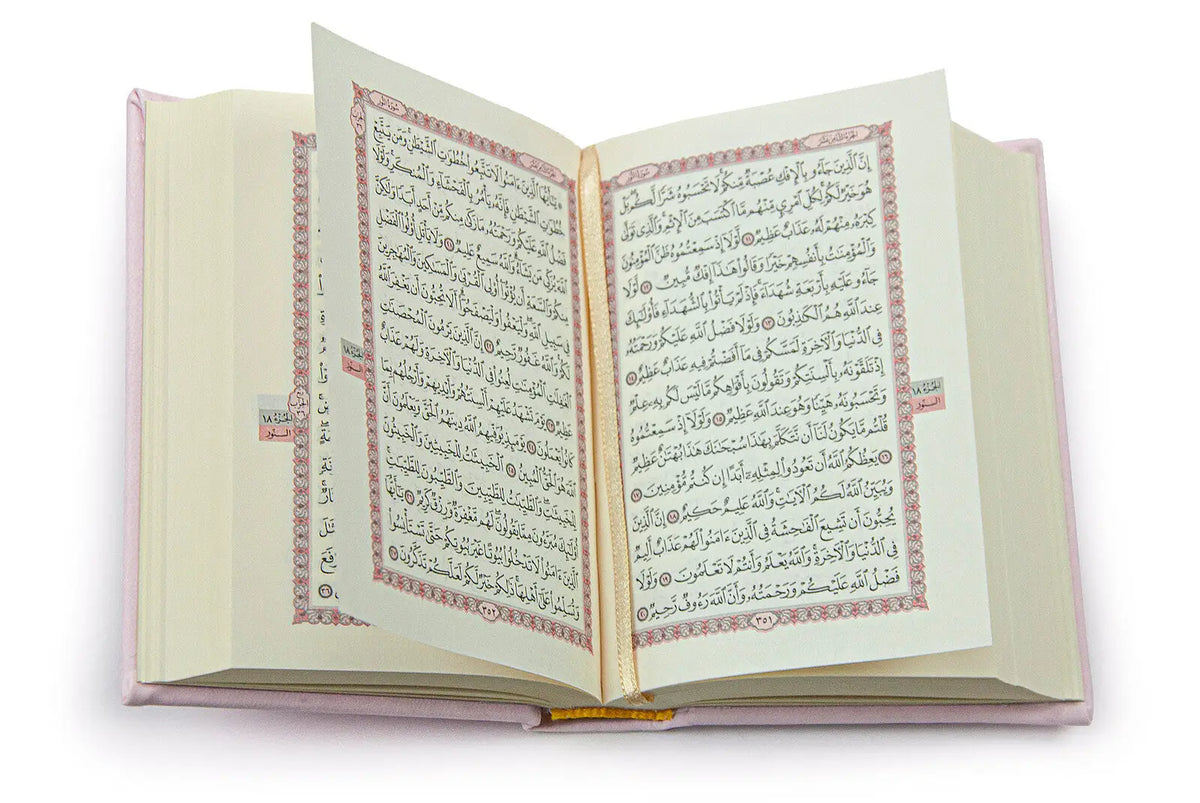 الجزء الثامن عشر
سورة النور
إِنَّ ٱلَّذِينَ جَآءُو بِٱلْإِفْكِ عُصْبَةٌ مِّنكُمْ لَا تَحْسَبُوهُ شَرًّا لَّكُم بَلْ
هُوَ خَيْرٌ لَّكُمْ لِكُلِّ ٱمْرِئٍ مِّنْهُم مَّا ٱكْتَسَبَ مِنَ ٱلْإِثْمِ وَٱلَّذِى تَوَلَّىٰ
كِبْرَهُۥ مِنْهُمْ لَهُۥ عَذَابٌ عَظِيمٌ ١١ لَّوْلَآ إِذْ سَمِعْتُمُوهُ ظَنَّ ٱلْمُؤْمِنُونَ
وَٱلْمُؤْمِنَٰتُ بِأَنفُسِهِمْ خَيْرًا وَقَالُوا۟ هَٰذَآ إِفْكٌ مُّبِينٌ ١٢ لَّوْلَا
جَآءُو عَلَيْهِ بِأَرْبَعَةِ شُهَدَآءَ فَإِذْ لَمْ يَأْتُوا۟ بِٱلشُّهَدَآءِ فَأُو۟لَٰٓئِكَ
عِندَ ٱللَّهِ هُمُ ٱلْكَٰذِبُونَ ١٣ وَلَوْلَا فَضْلُ ٱللَّهِ عَلَيْكُمْ وَرَحْمَتُهُۥ
فِى ٱلدُّنْيَا وَٱلْءَاخِرَةِ لَمَسَّكُمْ فِى مَآ أَفَضْتُمْ فِيهِ عَذَابٌ عَظِيمٌ ١٤
إِذْ تَلَقَّوْنَهُۥ بِأَلْسِنَتِكُمْ وَتَقُولُونَ بِأَفْوَاهِكُم مَّا لَيْسَ لَكُم بِهِۦ عِلْمٌ
وَتَحْسَبُونَهُۥ هَيِّنًا وَهُوَ عِندَ ٱللَّهِ عَظِيمٌ ١٥ وَلَوْلَآ إِذْ سَمِعْتُمُوهُ
قُلْتُم مَّا يَكُونُ لَنَآ أَن نَّتَكَلَّمَ بِهَٰذَا سُبْحَٰنَكَ هَٰذَا بُهْتَٰنٌ عَظِيمٌ
١٦ يَعِظُكُمُ ٱللَّهُ أَن تَعُودُوا۟ لِمِثْلِهِۦٓ أَبَدًا إِن كُنتُم مُّؤْمِنِينَ ١٧
وَيُبَيِّنُ ٱللَّهُ لَكُمُ ٱلْءَايَٰتِ وَٱللَّهُ عَلِيمٌ حَكِيمٌ ١٨ إِنَّ ٱلَّذِينَ
يُحِبُّونَ أَن تَشِيعَ ٱلْفَٰحِشَةُ فِى ٱلَّذِينَ ءَامَنُوا۟ لَهُمْ عَذَابٌ أَلِيمٌ
فِى ٱلدُّنْيَا وَٱلْءَاخِرَةِ وَٱللَّهُ يَعْلَمُ وَأَنتُمْ لَا تَعْلَمُونَ ١٩ وَلَوْلَا
فَضْلُ ٱللَّهِ عَلَيْكُمْ وَرَحْمَتُهُۥ وَأَنَّ ٱللَّهَ رَءُوفٌ رَّحِيمٌ ٢٠
٣٥١
الجزء ١٨
النور
الجزء الثامن عشر
سورة النور
يَٰٓأَيُّهَا ٱلَّذِينَ ءَامَنُوا۟ لَا تَتَّبِعُوا۟ خُطُوَٰتِ ٱلشَّيْطَٰنِ وَمَن يَتَّبِعْ
خُطُوَٰتِ ٱلشَّيْطَٰنِ فَإِنَّهُۥ يَأْمُرُ بِٱلْفَحْشَآءِ وَٱلْمُنكَرِ وَلَوْلَا
فَضْلُ ٱللَّهِ عَلَيْكُمْ وَرَحْمَتُهُۥ مَا زَكَىٰ مِنكُم مِّنْ أَحَدٍ أَبَدًا وَلَٰكِنَّ
ٱللَّهَ يُزَكِّى مَن يَشَآءُ وَٱللَّهُ سَمِيعٌ عَلِيمٌ ٢١ وَلَا يَأْتَلِ أُو۟لُوا۟ ٱلْفَضْلِ
مِنكُمْ وَٱلسَّعَةِ أَن يُؤْتُوٓا۟ أُو۟لِى ٱلْقُرْبَىٰ وَٱلْمَسَٰكِينَ وَٱلْمُهَٰجِرِينَ
فِى سَبِيلِ ٱللَّهِ وَلْيَعْفُوا۟ وَلْيَصْفَحُوٓا۟ أَلَا تُحِبُّونَ أَن يَغْفِرَ ٱللَّهُ
لَكُمْ وَٱللَّهُ غَفُورٌ رَّحِيمٌ ٢٢ إِنَّ ٱلَّذِينَ يَرْمُونَ ٱلْمُحْصَنَٰتِ
ٱلْغَٰفِلَٰتِ ٱلْمُؤْمِنَٰتِ لُعِنُوا۟ فِى ٱلدُّنْيَا وَٱلْءَاخِرَةِ وَلَهُمْ عَذَابٌ
عَظِيمٌ ٢٣ يَوْمَ تَشْهَدُ عَلَيْهِمْ أَلْسِنَتُهُمْ وَأَيْدِيهِمْ وَأَرْجُلُهُم بِمَا
كَانُوا۟ يَعْمَلُونَ ٢٤ يَوْمَئِذٍ يُوَفِّيهِمُ ٱللَّهُ دِينَهُمُ ٱلْحَقَّ وَيَعْلَمُونَ أَنَّ
ٱللَّهَ هُوَ ٱلْحَقُّ ٱلْمُبِينُ ٢٥ ٱلْخَبِيثَٰتُ لِلْخَبِيثِينَ وَٱلْخَبِيثُونَ
لِلْخَبِيثَٰتِ وَٱلطَّيِّبَٰتُ لِلطَّيِّبِينَ وَٱلطَّيِّبُونَ لِلطَّيِّبَٰتِ
أُو۟لَٰٓئِكَ مُبَرَّءُونَ مِمَّا يَقُولُونَ لَهُم مَّغْفِرَةٌ وَرِزْقٌ كَرِيمٌ ٢٦ يَٰٓأَيُّهَا
ٱلَّذِينَ ءَامَنُوا۟ لَا تَدْخُلُوا۟ بُيُوتًا غَيْرَ بُيُوتِكُمْ حَتَّىٰ تَسْتَأْنِسُوا۟
وَتُسَلِّمُوا۟ عَلَىٰٓ أَهْلِهَا ذَٰلِكُمْ خَيْرٌ لَّكُمْ لَعَلَّكُمْ تَذَكَّرُونَ ٢٧
٣٥٢
الحزب ٣٦
الجزء ١٨
النور
الجزء ١٨
النور